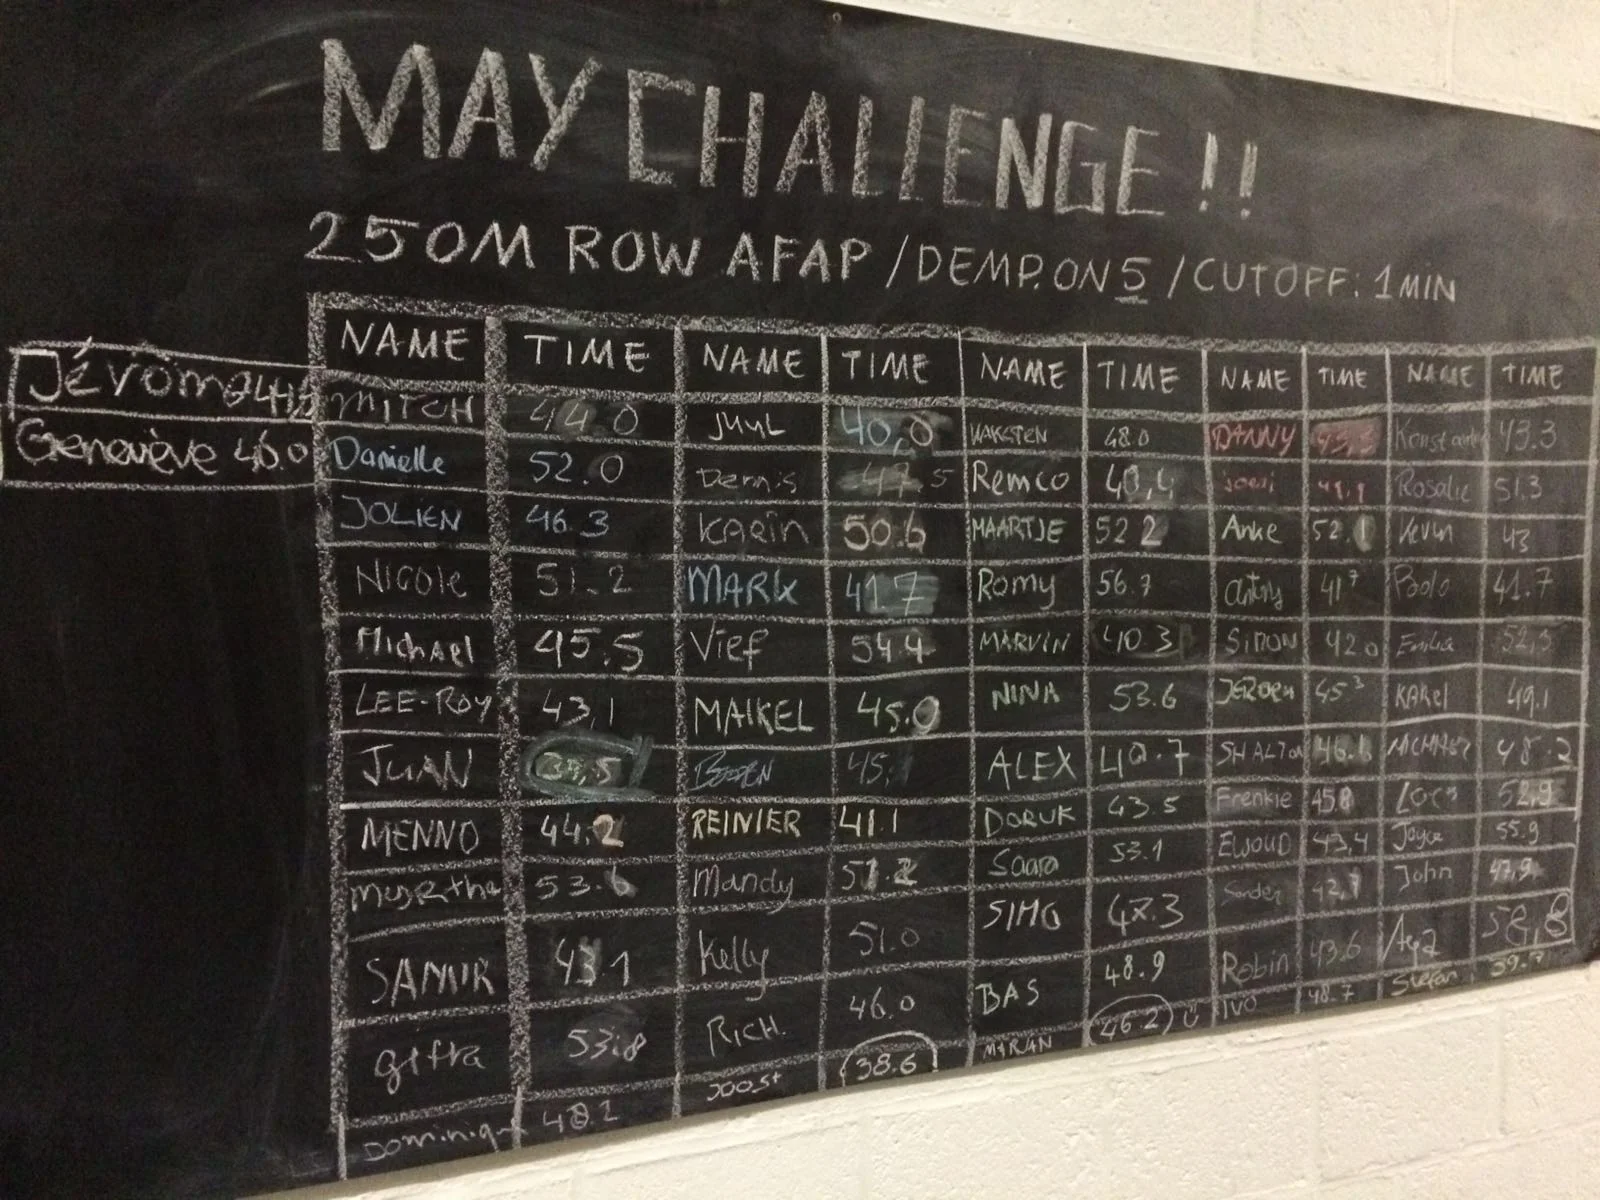 MAY CHALLENGE !!
250M ROW AFAP / DEMP. ON 5 / CUTOFF: 1 MIN
NAME TIME NAME TIME NAME TIME NAME TIME NAME TIME
Jérôme
Genoviève 46.0
MITCH 44.0 JUUL 40,0 48.0 DANNY 43.3
Danielle 52.0 Dennis 47.5 Remco 40,4 Rosalie 51.3
JOLIEN 46.3 Karin 50.6 MAARTJE 52 2 Anke 52.1 Kevin 43
NICOLE 51.2 MARK 41.7 Romy 56.7 41 7 Paolo 41.7
MichAel 45.5 Vief 54.4 MARVIN 40 3 SIMON 42 0 Emilia 52,5
LEE-ROY 43,1 MAIKEL 45.0 NINA 53.6 JEROEN 45 3 KAREL 49.1
JUAN 45, ALEX 40.7 SHALTON 48.2
MENNO 44.2 REINIER 41.1 DORUK 43.5 Frenkie 52,9
53.6 Mandy 51.2 Saara 53.1 EWOUD 43,4 Joyce 55.9
SAMIR 43.1 Kelly 51.0 SIMO 47.3 Sander John 47,9
giftra 53.8 RICH. 46.0 BAS 48.9 Robin 43.6 58,8
Dominique 48.2 Joost 38.6 MARJAN 46.2 IVO 48.7 Stefan